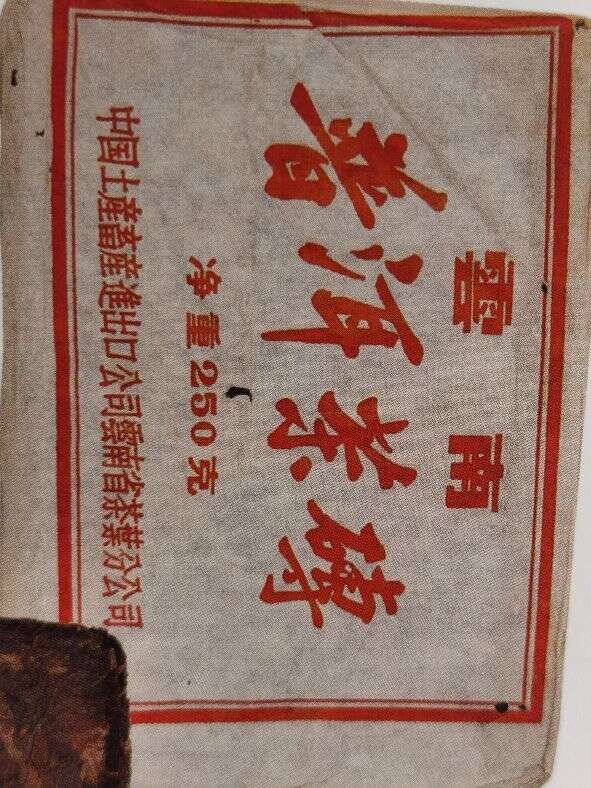 雲南
普洱茶磚
净重250克
中国土產畜産進出口公司雲南省茶葉分公司